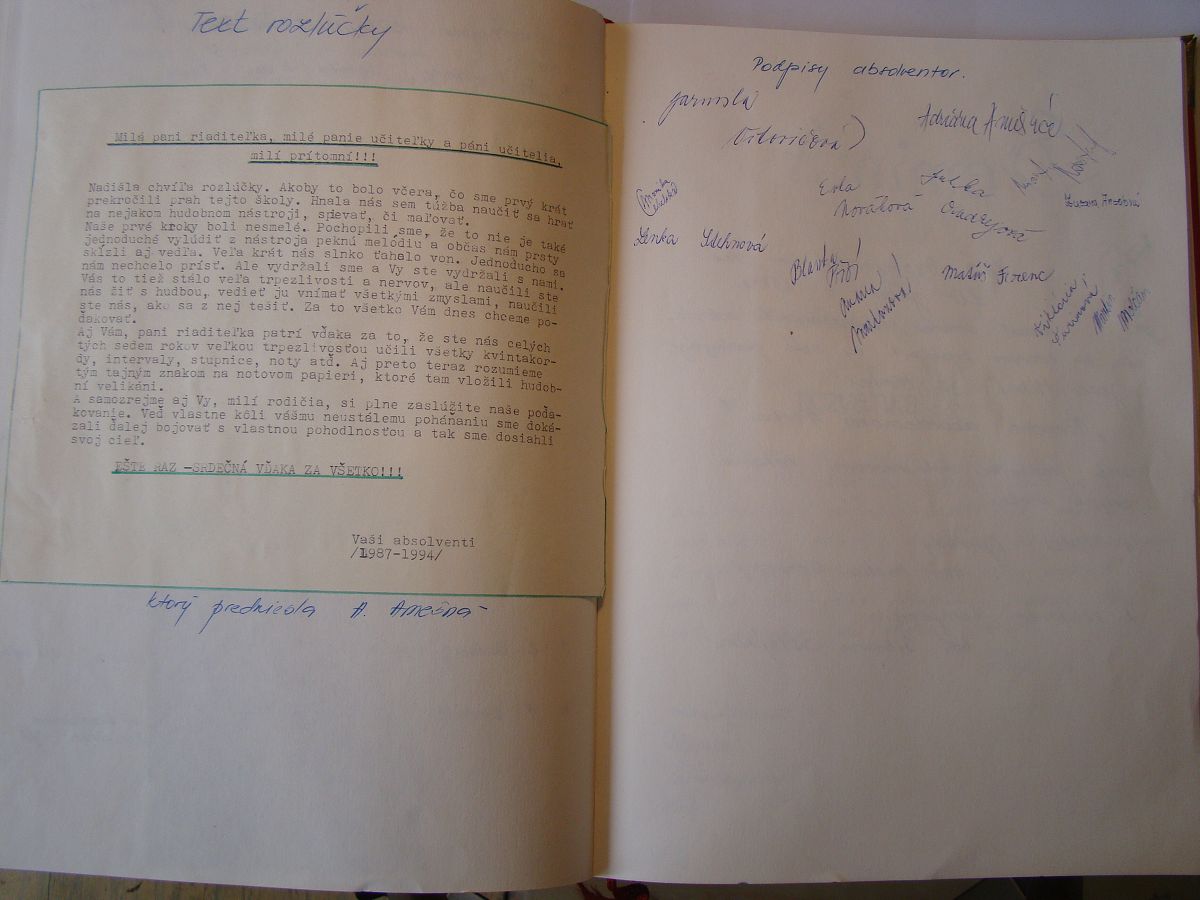 Text rozlúčky
Milá pani riaditeľka, milé panie učiteľky a páni učitelia,
milí prítomní!!!
Nadišla chvíľa rozlúčky. Akoby to bolo včera, čo sme prvý krát
prekročili prah tejto školy. Hnala nás sem túžba naučiť sa hrať
na nejakom hudobnom nástroji, spievať, či maľovať.
Naše prvé kroky boli nesmelé. Pochopili sme, že to nie je také
jednoduché vylúdiť z nástroja peknú melódiu a občas nám prsty
skĺzli aj vedľa. Veľa krát nás slnko ťahalo von. Jednoducho sa
nám nechcelo prísť. Ale vydržali sme a Vy ste vydržali s nami.
Vás to tiež stálo veľa trpezlivosti a nervov, ale naučili ste
nás žiť s hudbou, vedieť ju vnímať všetkými zmyslami, naučili
ste nás, ako sa z nej tešiť. Za to všetko Vám dnes chceme po-
ďakovať.
Aj Vám, pani riaditeľka patrí vďaka za to, že ste nás celých
tých sedem rokov veľkou trpezlivosťou učili všetky kvintakor-
dy, intervaly, stupnice, noty atď. Aj preto teraz rozumieme
tým tajným znakom na notovom papieri, ktoré tam vložili hudob-
ní velikáni.
A samozrejme aj Vy, milí rodičia, si plne zaslúžite naše poďa-
kovanie. Veď vlastne kôli vášmu neustálemu poháňaniu sme doká-
zali ďalej bojovať s vlastnou pohodlnosťou a tak sme dosiahli
svoj cieľ.
EŠTE RAZ -SRDEČNÁ VĎAKA ZA VŠETKO!!!
Vaši absolventi
/1987-1994/
ktorý predniesla A.
Podpisy absolventov.
Adriána
Monika
Novotný
Zuzana
Eva
Nováková
Ľubka
Lenka
Blavka
Matúš Ferenc
Martin